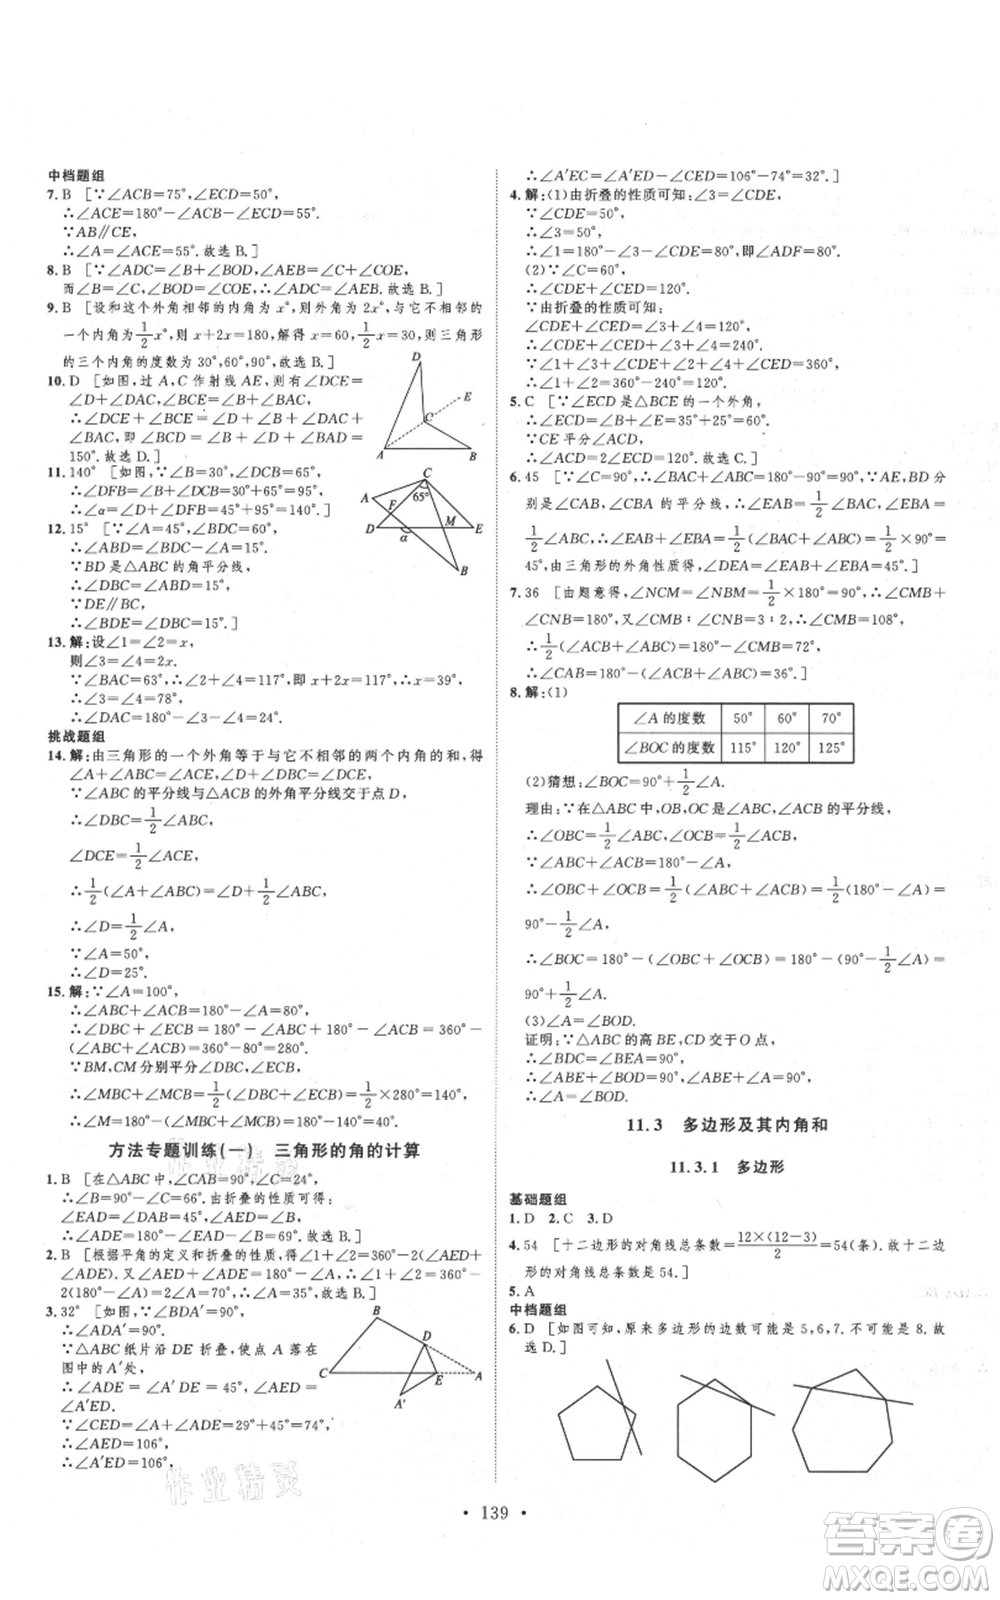 中档题组
7. B [∵∠ACB=75°,∠ECD=50°,
∴∠ACE=180°-∠ACB-∠ECD=55°.
∵AB∥CE,
∴∠A=∠ACE=55°.故选 B.]
8. B [∵∠ADC=∠B+∠BOD,∠AEB=∠C+∠COE,
而∠B=∠C,∠BOD=∠COE,∴∠ADC=∠AEB.故选 B.]
9. B [设和这个外角相邻的内角为 x°,则外角为 2x°,与它不相邻的
一个内角为 1/2 x°,则 x+2x=180,解得 x=60,1/2 x=30,则三角形
的三个内角的度数为 30°,60°,90°,故选 B.]
10. D [如图,过 A,C 作射线 AE,则有∠DCE=
∠D+∠DAC,∠BCE=∠B+∠BAC,
∴∠DCE+∠BCE=∠D+∠B+∠DAC+
∠BAC,即∠BCD=∠B+∠D+∠BAD=
150°.故选 D.]
D
E
C
A
B
11. 140° [如图,∵∠B=30°,∠DCB=65°,
∴∠DFB=∠B+∠DCB=30°+65°=95°,
∴∠α=∠D+∠DFB=45°+95°=140°.]
C
A
F
65°
D
M
E
α
B
12. 15° [∵∠A=45°,∠BDC=60°,
∴∠ABD=∠BDC-∠A=15°.
∵BD 是△ABC 的角平分线,
∴∠DBC=∠ABD=15°.
∵DE∥BC,
∴∠BDE=∠DBC=15°.]
13. 解:设∠1=∠2=x,
则∠3=∠4=2x.
∵∠BAC=63°,∴∠2+∠4=117°,即 x+2x=117°,∴x=39°.
∴∠3=∠4=78°,
∴∠DAC=180°-∠3-∠4=24°.
挑战题组
14. 解:由三角形的一个外角等于与它不相邻的两个内角的和,得
∠A+∠ABC=∠ACE,∠D+∠DBC=∠DCE,
∵∠ABC 的平分线与∠ACE 的外角平分线交于点 D,
∴∠DBC=1/2∠ABC,
∠DCE=1/2∠ACE,
∴1/2(∠A+∠ABC)=∠D+1/2∠ABC,
∴∠D=1/2∠A,
∵∠A=50°,
∴∠D=25°.
15. 解:∵∠A=100°,
∴∠ABC+∠ACB=180°-∠A=80°,
∴∠DBC+∠ECB=180°-∠ABC+180°-∠ACB=360°-
(∠ABC+∠ACB)=360°-80°=280°.
∵BM,CM 分别平分∠DBC,∠ECB,
∴∠MBC+∠MCB=1/2(∠DBC+∠ECB)=1/2×280°=140°,
∴∠M=180°-(∠MBC+∠MCB)=180°-140°=40°.
方法专题训练(一) 三角形的角的计算
1. B [∵在△ABC 中,∠ACB=90°,∠C=24°,
∴∠B=90°-∠C=66°.由折叠的性质可得:
∠EAD=∠DAB=45°,∠AED=∠B,
∴∠ADE=180°-∠AED-∠EAD=69°.故选 B.]
2. B [根据平角的定义和折叠的性质,得∠1+∠2=360°-2(∠AED+
∠ADE).又∵∠AED+∠ADE=180°-∠A,∴∠1+∠2=360°-
2(180°-∠A)=2∠A=70°,∴∠A=35°.故选 B.]
3. 32° [如图,∵∠BDA′=90°,
∴∠ADA′=90°.
∵△ABC 纸片沿 DE 折叠,使点 A 落在
图中的 A′处,
∴∠ADE=∠A′DE=45°,∠AED=
∠A′ED.
∵∠CED=∠A+∠ADE=29°+45°=74°,
∴∠AED=106°,
∴∠A′ED=∠AED=106°,
B
D
C
E
A
A′
∴∠A′EC=∠A′ED-∠CED=106°-74°=32°.]
4. 解:(1)由折叠的性质可知:∠3=∠CDE,
∵∠CDE=50°,
∴∠3=50°,
∴∠1=180°-∠3-∠CDE=80°,即∠ADF=80°.
(2)∵∠C=60°,
∴∠CDE+∠CED=120°.
∵由折叠的性质可知:
∠CDE+∠CED=∠3+∠4=120°,
∴∠CDE+∠CED+∠3+∠4=240°,
∵∠1+∠3+∠CDE+∠2+∠4+∠CED=360°,
∴∠1+∠2=360°-240°=120°.
5. C [∵∠ECD 是△BCE 的一个外角,
∴∠ECD=∠B+∠E=35°+25°=60°.
∵CE 平分∠ACD,
∴∠ACD=2∠ECD=120°.故选 C.]
6. 45 [∵∠C=90°,∴∠BAC+∠ABC=90°,∵AE,BD 分
别是∠CAB,∠CBA 的平分线,∴∠EAB=1/2∠CAB,∠EBA=
1/2∠ABC,∴∠EAB+∠EBA=1/2(∠BAC+∠ABC)=1/2×90°=
45°,由三角形的外角性质,∠DEA=∠EAB+∠EBA=45°.]
7. 36 [由题意得,∠NCM=∠NBM=1/2×180°=90°,∴∠CMB+
∠CNB=180°,又∠CMB∶∠CNB=3∶2,∴∠CMB=108°,
∴1/2(∠ACB+∠ABC)=180°-∠CMB=72°,
∴∠CAB=180°-(∠ACB+∠ABC)=36°.]
8. 解:(1)
∠A 的度数 50° 60° 70°
∠BOC 的度数 115° 120° 125°
(2)猜想:∠BOC=90°+1/2∠A.
理由:∵在△ABC 中,OB,OC 是∠ABC,∠ACB 的平分线,
∴∠OBC=1/2∠ABC,∠OCB=1/2∠ACB,
∵∠ABC+∠ACB=180°-∠A,
∴∠OBC+∠OCB=1/2(∠ABC+∠ACB)=1/2(180°-∠A)=
90°-1/2∠A,
∴∠BOC=180°-(∠OBC+∠OCB)=180°-(90°-1/2∠A)=
90°+1/2∠A.
(3)∠A=∠BOD.
证明:∵△ABC 的高 BE,CD 交于 O 点,
∴∠BDC=∠BEA=90°,
∴∠ABE+∠BOD=90°,
∵∠ABE+∠A=90°,
∴∠A=∠BOD.
11.3 多边形及其内角和
11.3.1 多边形
基础题组
1. D 2. C 3. D
4. 54 [十二边形的对角线总条数=12×(12-3)/2=54(条).故十二边
形的对角线总条数是 54.]
5. A
中档题组
6. D [如图可知,原来多边形的边数可能是 5,6,7.不可能是 8.故
选 D.]
• 139 •
作业精灵
作业精灵
答案卷
MXQE.COM